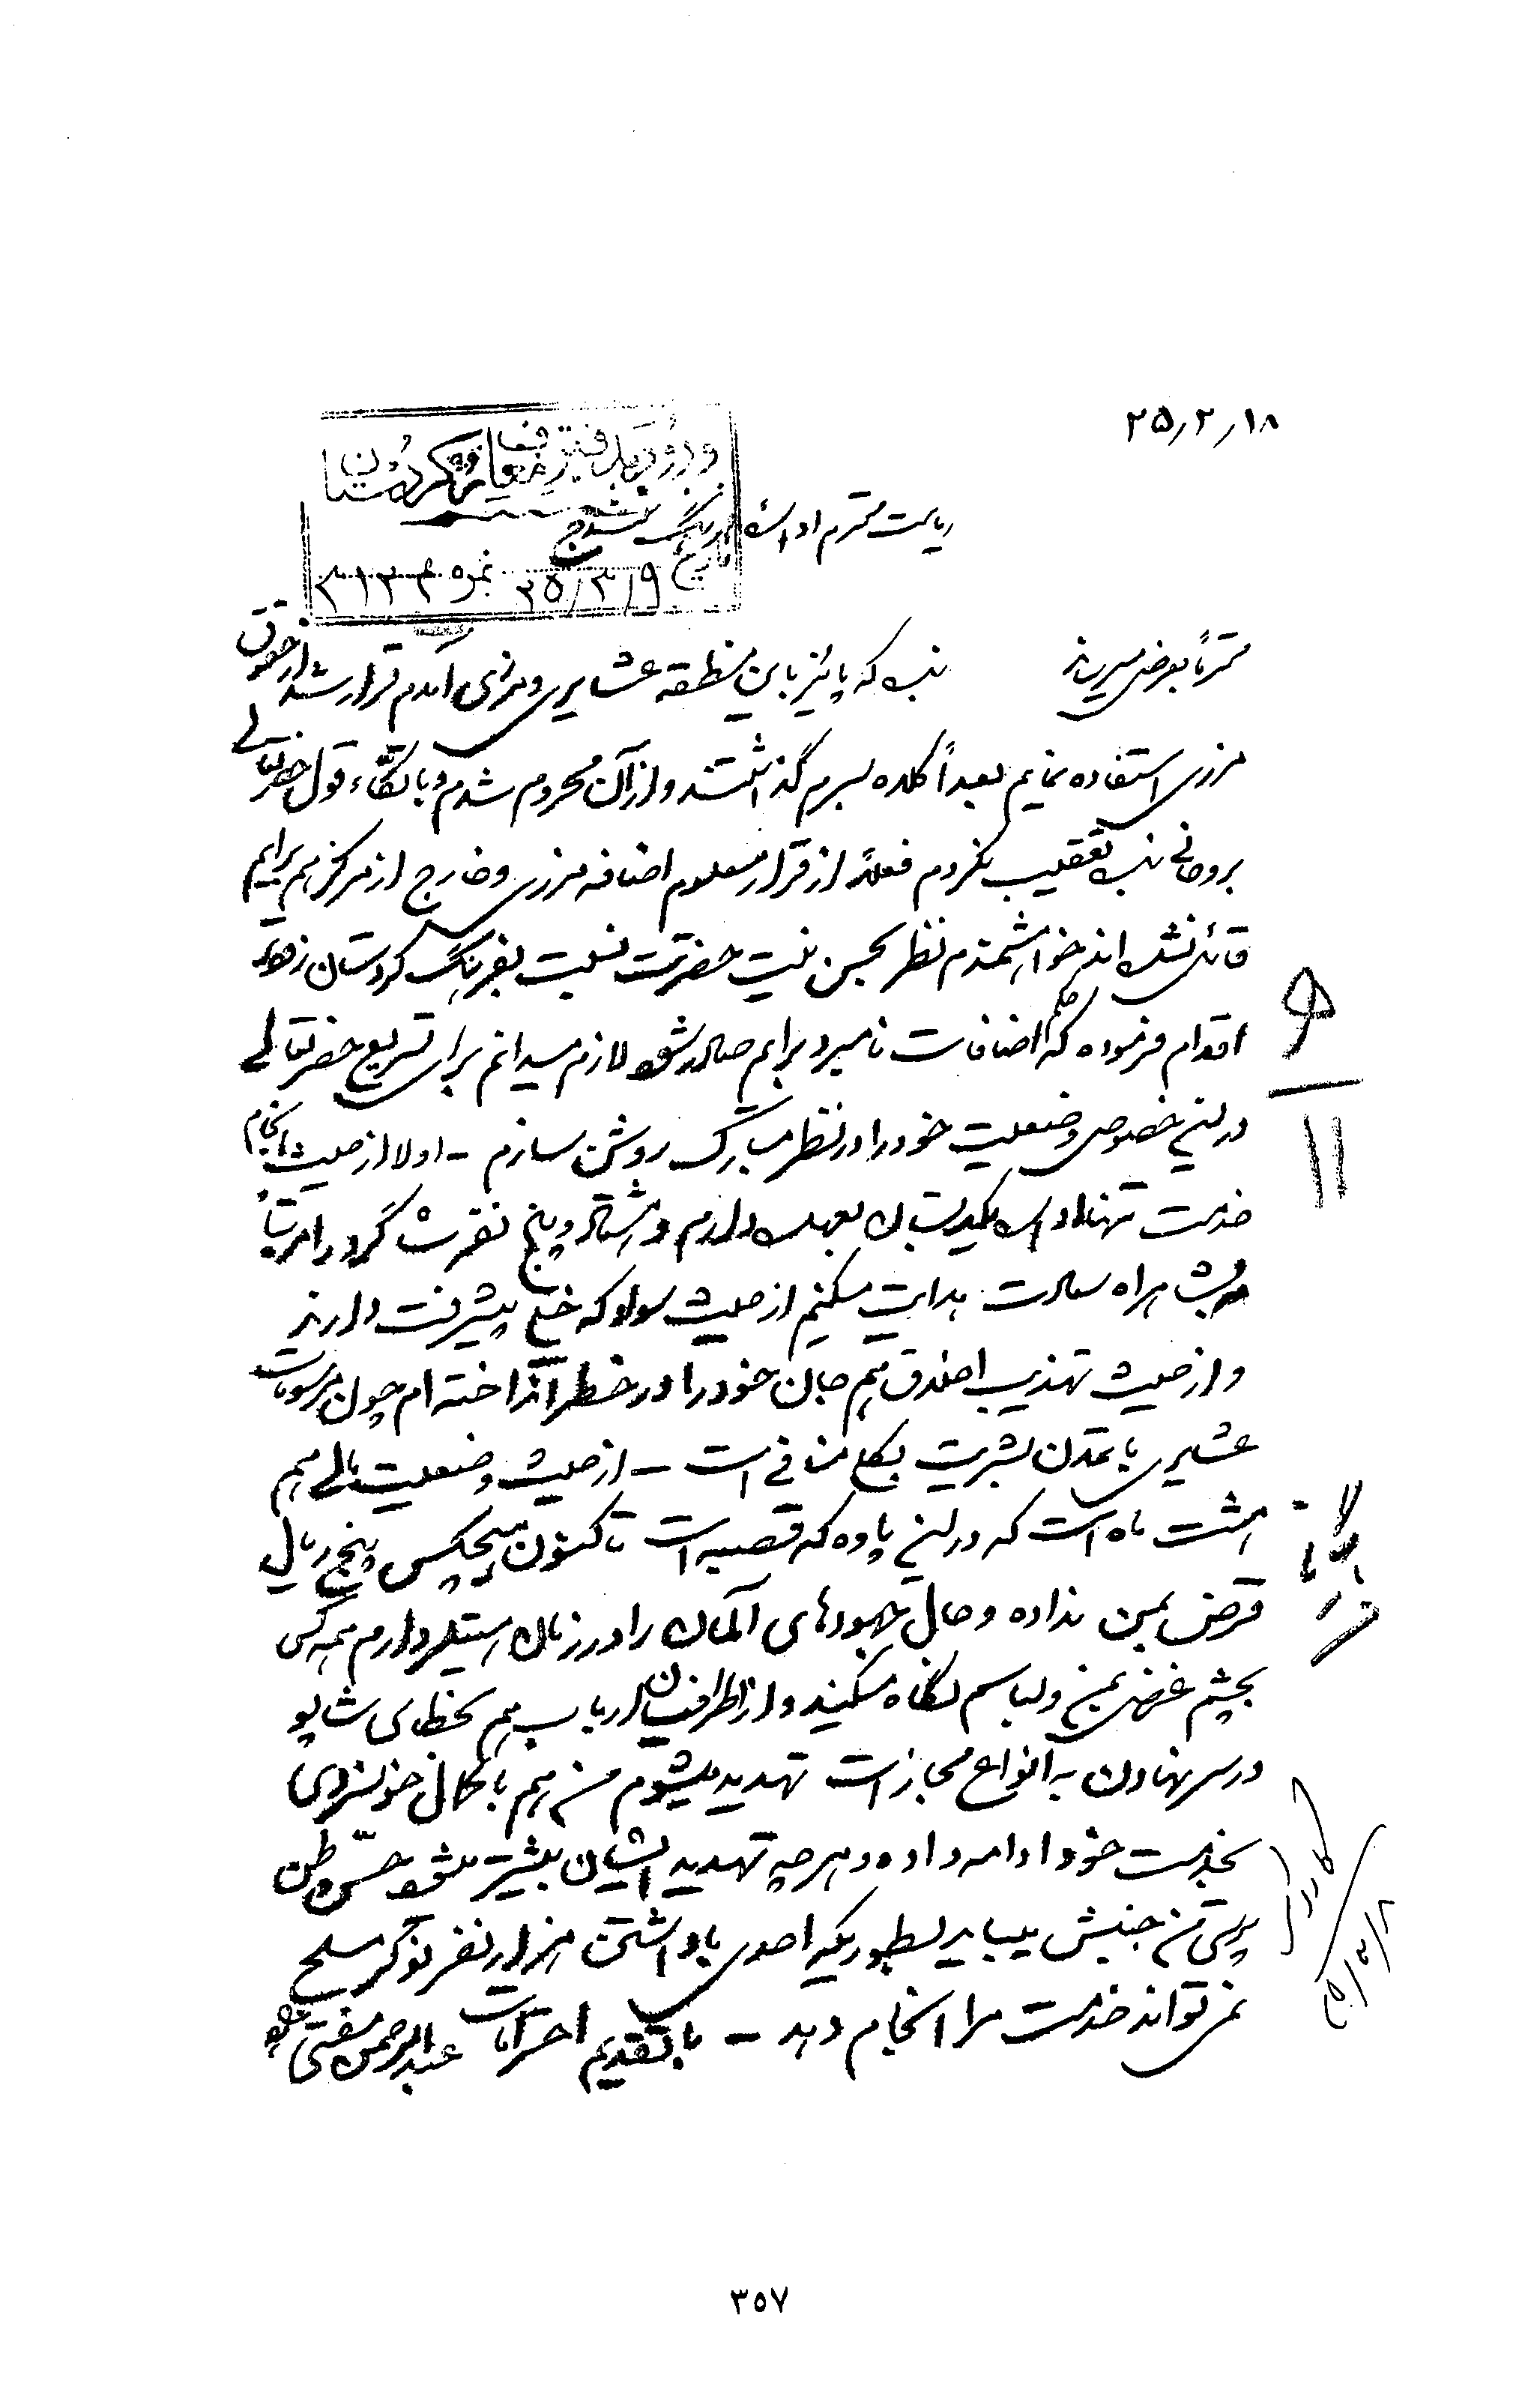 ۲۵/۲/۱۸
ورود بدفتر معارف کردستان
ریاست محترم اداره فرهنگ سنندج
تاریخ ۲۵/۳/۹ نمره
محترماً بعرض میرساند بنده که پائیز باین منطقه عشایری و مرزی آمدم قرار شد از حقوق
مرزی استفاده نمایم بعداً کلاه بسرم گذاشتند و از آن محروم شدم و باتکاء قول جنابعالی
بنده تعقیب نکردم فعلاً از قرار معلوم اضافه مرزی و خارج از مرکز هم برایم
قائل نشده اند خواهشمندم نظر بحسن نیت حضرتت نسبت بفرهنگ کردستان
اقدام فرموده که حکم اضافات نامبرده برایم صادر شود لازم میدانم برای تسریع حضرتعالی
در این خصوص وضعیت خود را در نظر مبارک روشن سازم - اولا از حیث انجام
خدمت تنها اداره یکدبستان بعهده دارم و هشتاد و پنج نفر شاگرد را مرتباً
براه سعادت هدایت میکنم از حیث سواد که خیلی پیشرفت دارند
و از حیث تهذیب اخلاق هم جان خود را در خطر انداخته ام چون مرسومات
عشایری با تمدن بشریت بکلی منافی است - از حیث وضعیت مالی هم
هشت ماه است که در این پاوه که قصبه است تاکنون هیچکس پنج ریال
قرض بمن نداده و حال جهودهای آلمان را در زمان هیتلر دارم همه کس
بچشم غضب بمن و لباسم نگاه میکنند و از طرف اربابان هم بخطای شاپو
در سر نهادن به انواع مجازات تهدید میشوم من هم با کمال خونسردی
بخدمت خود ادامه داده و هرچه تهدید ایشان بیشتر میشود حس وطن
پرستی من جنبش مییابد بطوریکه احدی با داشتن هزار نفر نوکر مسلح
نمی تواند خدمت مرا انجام دهد - با تقدیم احترامات عبدالرحمن مفتی
۳۵۷